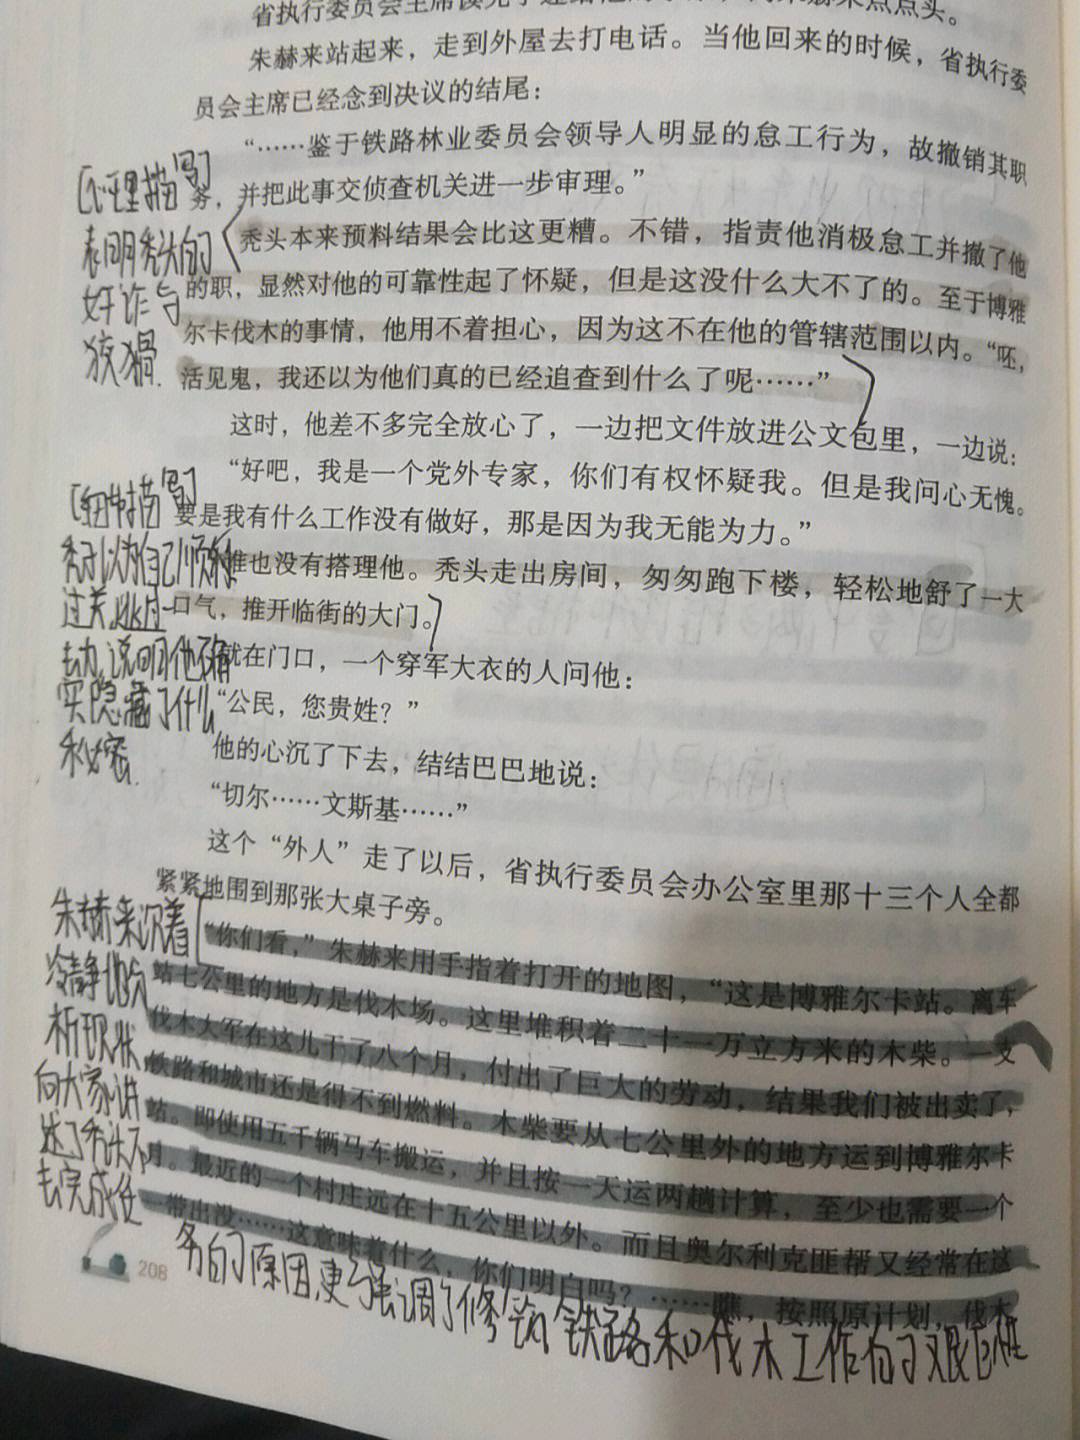 省执行委员会主席读完了
朱赫来站起来，走到外屋去打电话。当他回来的时候，省执行委
员会主席已经念到决议的结尾：
“……鉴于铁路林业委员会领导人明显的怠工行为，故撤销其职
务，并把此事交侦查机关进一步审理。”
秃头本来预料结果会比这更糟。不错，指责他消极怠工并撤了他
的职，显然对他的可靠性起了怀疑，但是这没什么大不了的。至于博雅
尔卡伐木的事情，他用不着担心，因为这不在他的管辖范围以内。“呸，
活见鬼，我还以为他们真的已经追查到什么了呢……”
这时，他差不多完全放心了，一边把文件放进公文包里，一边说：
“好吧，我是一个党外专家，你们有权怀疑我。但是我问心无愧。
要是我有什么工作没有做好，那是因为我无能为力。”
谁也没有搭理他。秃头走出房间，匆匆跑下楼，轻松地舒了一大
口气，推开临街的大门。
就在门口，一个穿军大衣的人问他：
“公民，您贵姓？”
他的心沉了下去，结结巴巴地说：
“切尔……文斯基……”
这个“外人”走了以后，省执行委员会办公室里那十三个人全都
紧紧地围到那张大桌子旁。
“你们看，”朱赫来用手指着打开的地图，“这是博雅尔卡站。离车
站七公里的地方是伐木场。这里堆积着二十一万立方米的木柴。一支
伐木大军在这儿干了八个月，付出了巨大的劳动，结果我们被出卖了，
铁路和城市还是得不到燃料。木柴要从七公里外的地方运到博雅尔卡
站。即使用五千辆马车搬运，并且按一天运两趟计算，至少也需要一个
月。最近的一个村庄远在十五公里以外。而且奥尔利克匪帮又经常在这
一带出没……这意味着什么，你们明白吗？……瞧，按照原计划，伐木
208
[心理描写]
表明秃头的
奸诈与
狡猾.
[细节描写]
秃子以为自己顺利
过关,逃过一
劫,说明他确
实隐藏了什么
秘密.
朱赫来沉着
冷静地分
析现状
向大家讲
述了秃头不
去完成任
务的原因,更强调了修筑铁路和伐木工作的艰巨性